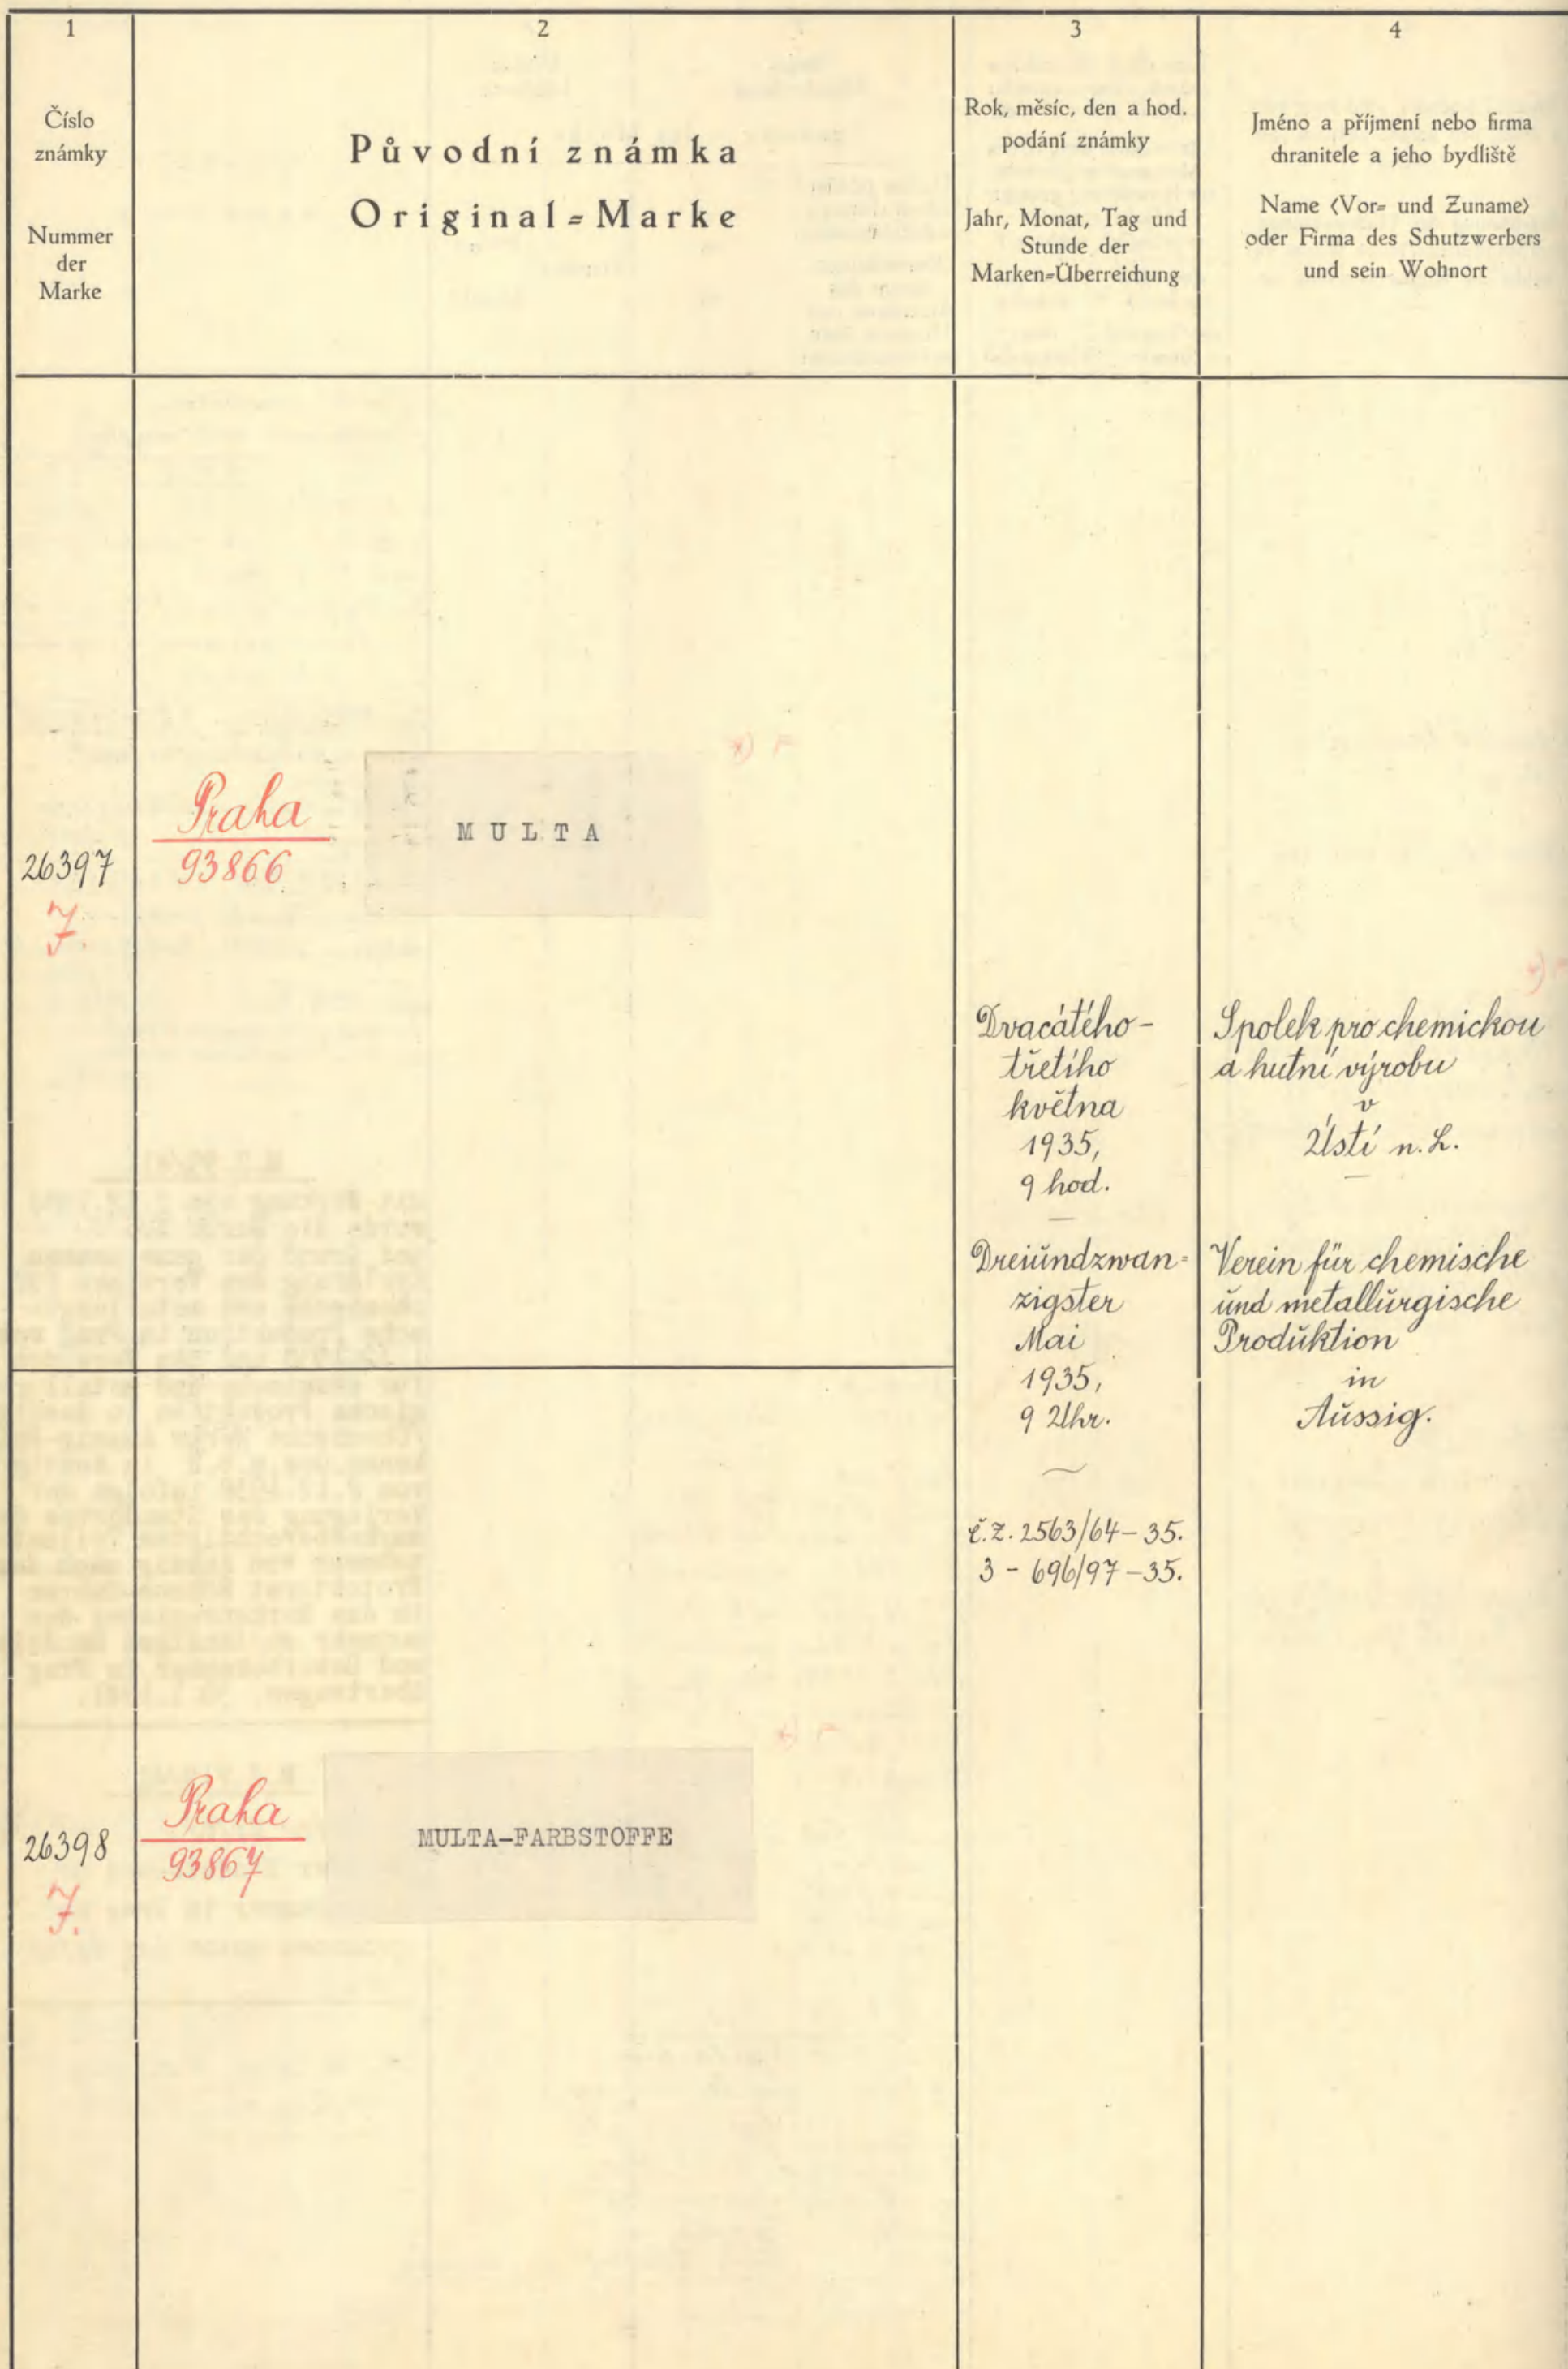 1
2
3
4
Číslo
známky
Nummer
der
Marke
Původní známka
Original-Marke
Rok, měsíc, den a hod.
podání známky
Jahr, Monat, Tag und
Stunde der
Marken-Überreichung
Jméno a příjmení nebo firma
chranitele a jeho bydliště
Name (Vor- und Zuname)
oder Firma des Schutzwerbers
und sein Wohnort
26397
7.
Praha
93866
x) F
MULTA
Dvacátého-
třetího
května
1935,
9 hod.
Dreiundzwan-
zigster
Mai
1935,
9 Uhr.
č.z. 2563/64-35.
3 - 696/97-35.
Spolek pro chemickou
a hutní výrobu
v
Ústí n. L.
Verein für chemische
und metallurgische
Produktion
in
Aussig.
26398
7.
Praha
93867
x) F
MULTA-FARBSTOFFE